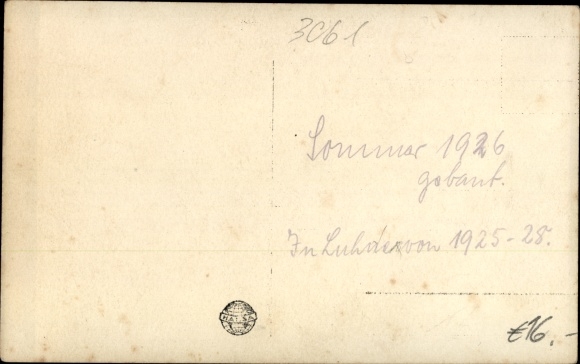 3061
Sommar 1926
gebaut.
In von 1925-28.
€16.-